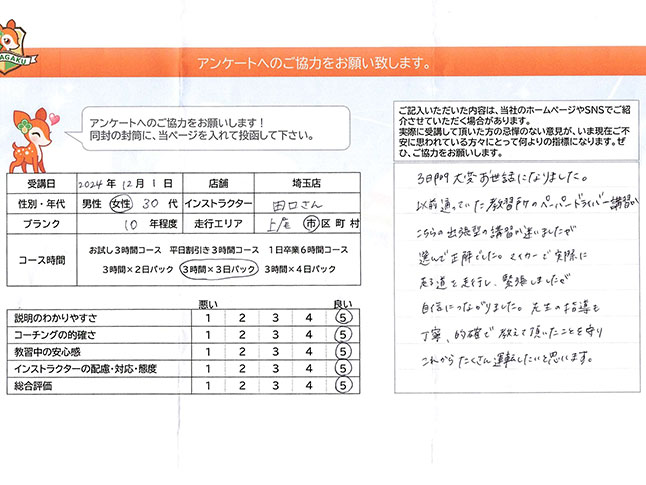 AGAKU
アンケートへのご協力をお願い致します。
アンケートへのご協力をお願いします！
同封の封筒に、当ページを入れて投函して下さい。
受講日 2024年 12月 1日 店舗 埼玉店
性別・年代 男性 女性 30代 インストラクター 田口さん
ブランク 10 年程度 走行エリア 上尾 市区町村
コース時間
お試し3時間コース 平日割引き3時間コース 1日卒業6時間コース
3時間×2日パック 3時間×3日パック 3時間×4日パック
悪い 良い
説明のわかりやすさ 1 2 3 4 5
コーチングの的確さ 1 2 3 4 5
教習中の安心感 1 2 3 4 5
インストラクターの配慮・対応・態度 1 2 3 4 5
総合評価 1 2 3 4 5
ご記入いただいた内容は、当社のホームページやSNSでご紹
介させていただく場合があります。
実際に受講して頂いた方の忌憚のない意見が、いま現在ご不
安に思われている方々にとって何よりの指標になります。ぜ
ひ、ご協力をお願いします。
3日間大変お世話になりました。
以前通っていた教習所のペーパードライバー講習か
こちらの出張型の講習か迷いましたが
選んで正解でした。マイカーで実際に
走る道を走行し、緊張しましたが
自信につながりました。先生の指導も
丁寧、的確で教えて頂いたことを守り
これからたくさん運転したいと思います。